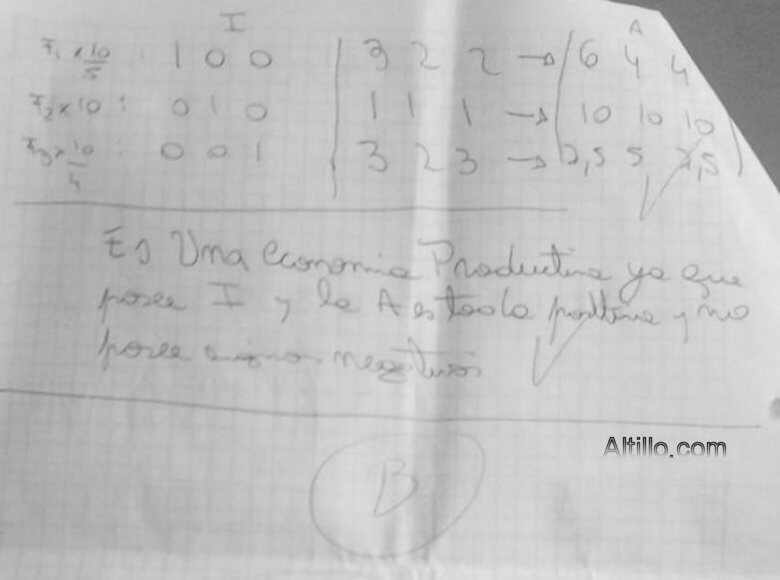 I
A
F₁ × 10/5 : 1 0 0 | 3 2 2 → ( 6 4 4
F₂ × 10 : 0 1 0 | 1 1 1 → 10 10 10
F₃ × 10/4 : 0 0 1 | 3 2 3 → 7,5 5 7,5 )
Es Una economia Productiva ya que
posee I y la A es toda positiva y no
posee signos negativos
Altillo.com
B